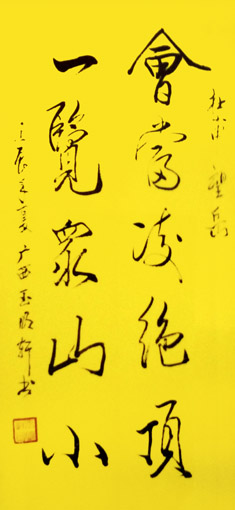 杜甫 望岳
會當凌絕頂
一覽眾山小
壬辰之夏 广西玉明轩书